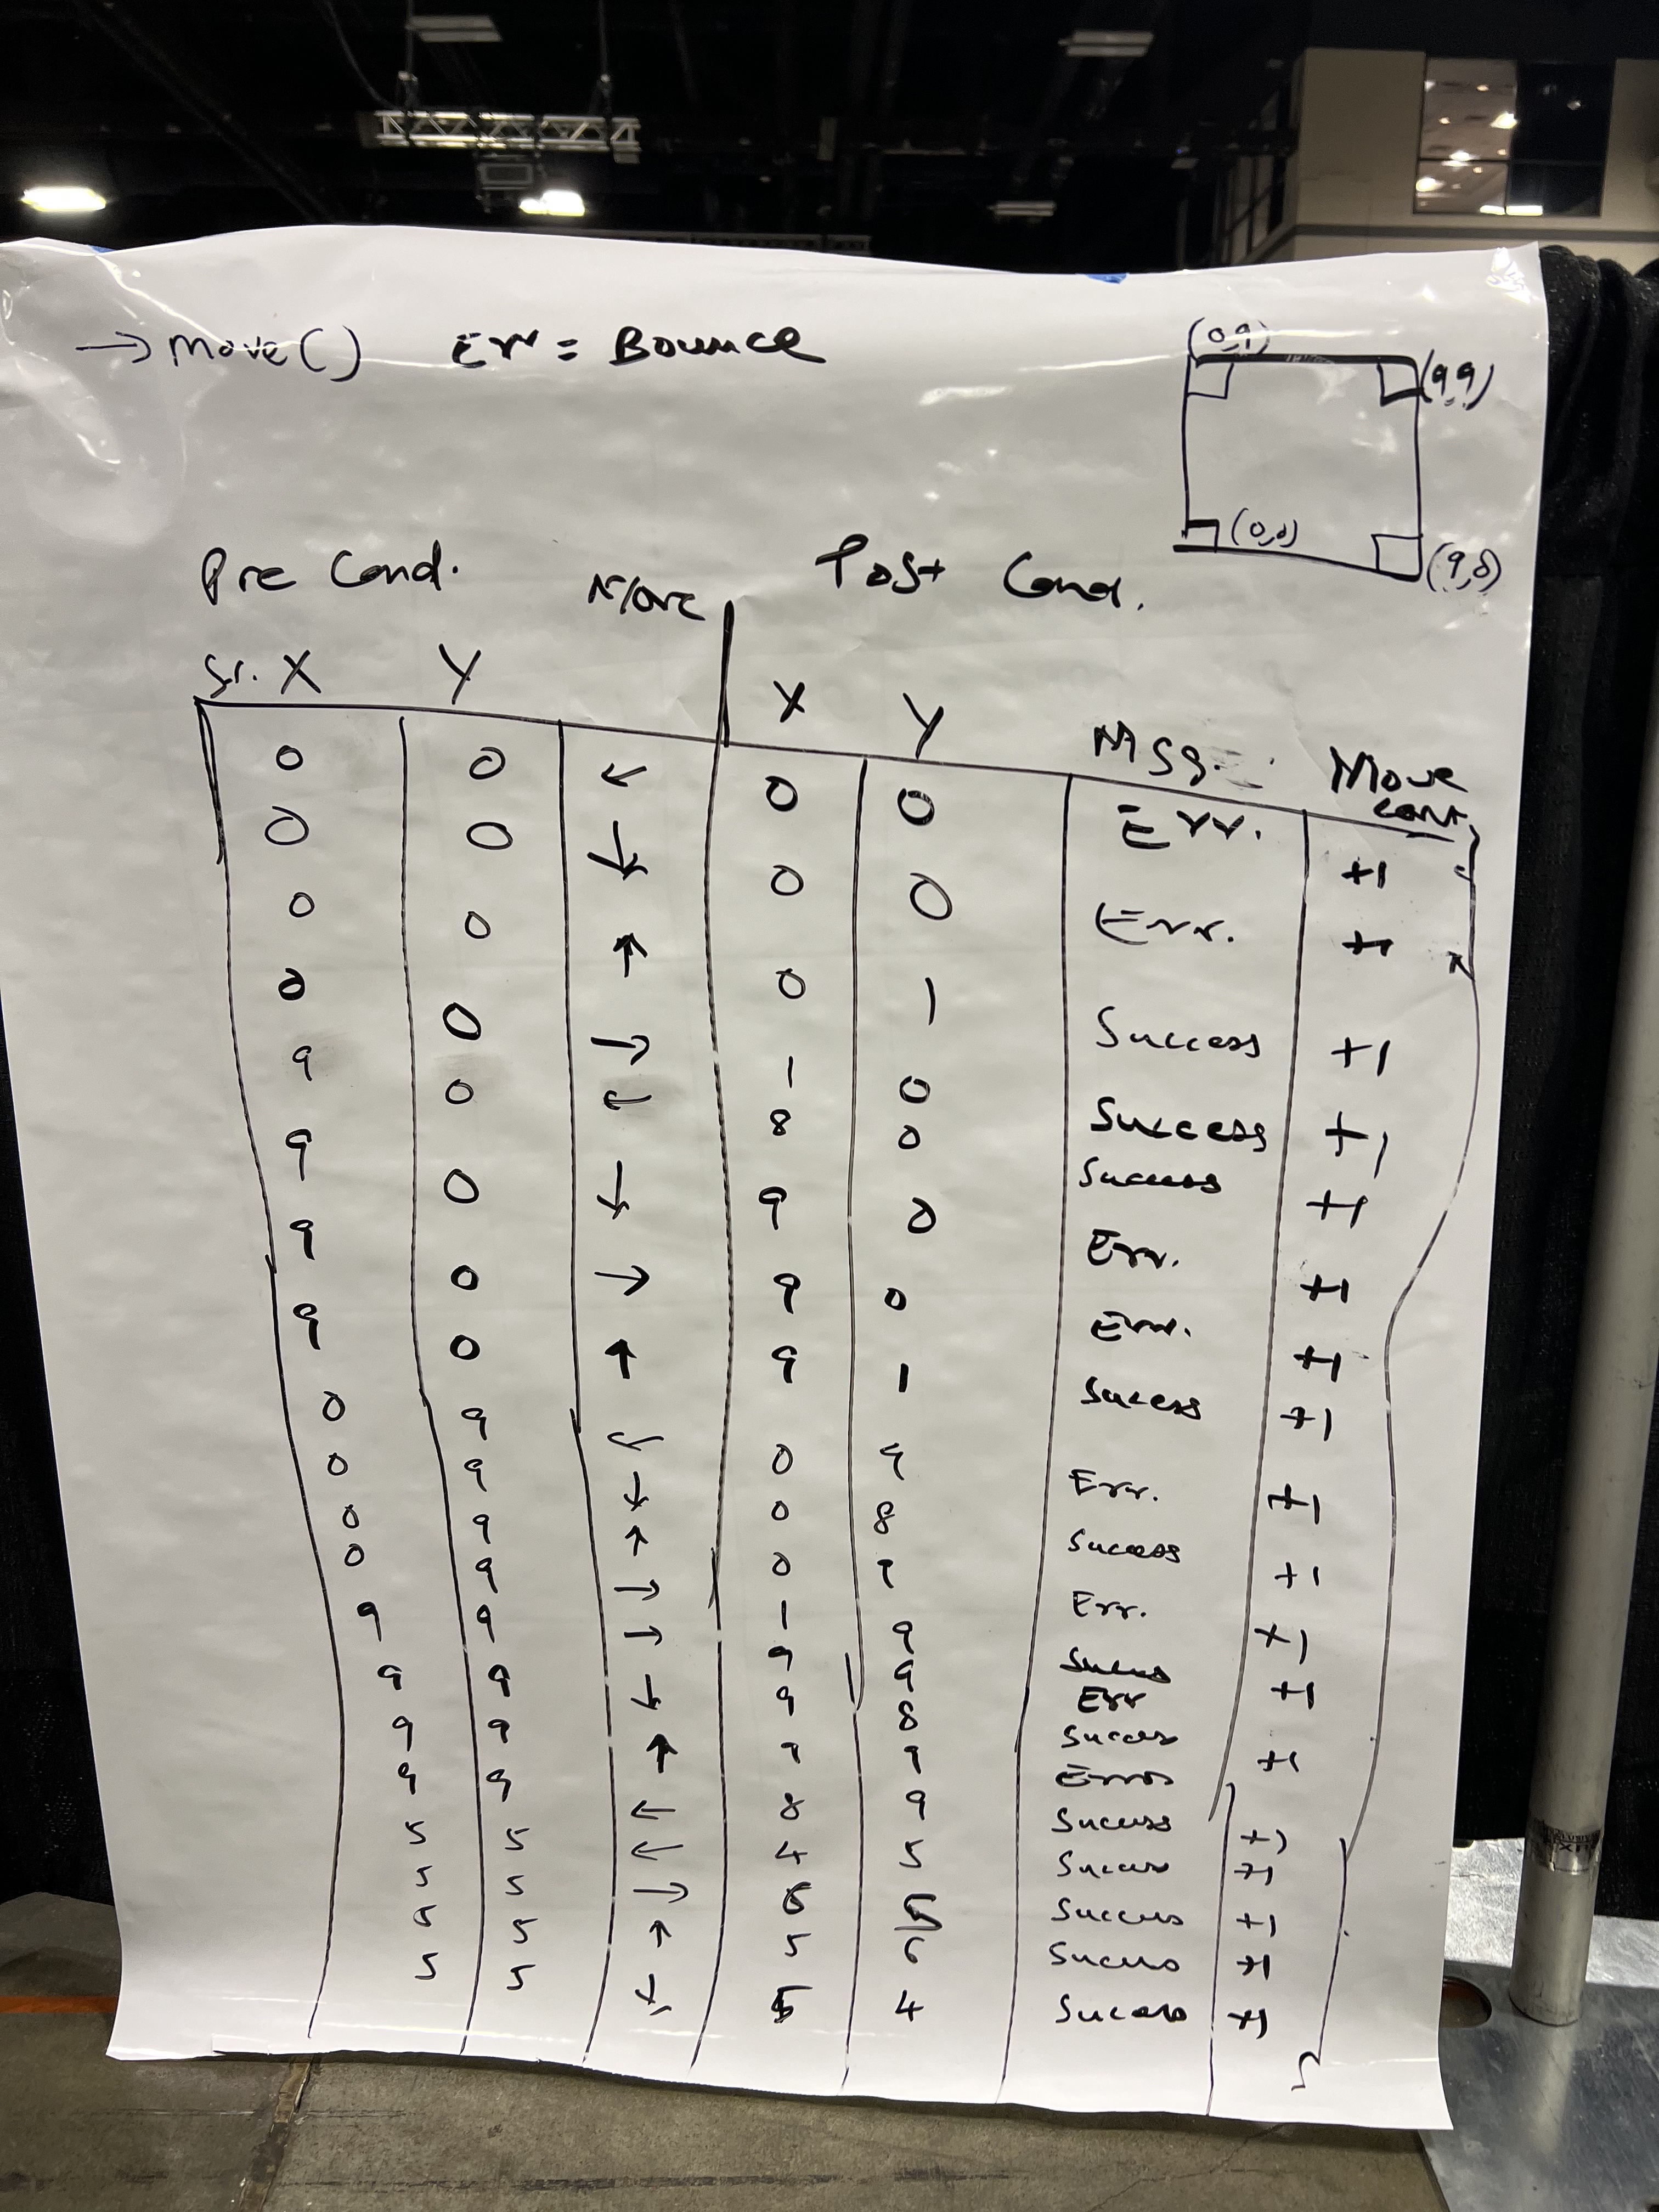 → move() Err = Bounce
(0,9)
(9,9)
(0,0)
(9,0)
Pre Cond. Move Post Cond.
Sr. X Y X Y Msg. Move
cont.
0 0 ← 0 0 Err. +1
0 0 ↓ 0 0 Err. +1
0 0 ↑ 0 1 Success +1
0 0 → 1 0 Success +1
9 0 ← 8 0 Success +1
9 0 ↓ 9 0 Err. +1
9 0 → 9 0 Err. +1
9 0 ↑ 9 1 Sucess +1
0 9 ← 0 9 Err. +1
0 9 ↓ 0 8 Success +1
0 9 ↑ 0 9 Err. +1
0 9 → 1 9 +1
9 9 → 9 9 Err +1
9 9 ↓ 9 8
9 9 ↑ 9 9 Error
9 9 ← 8 9 Sucess +1
5 5 ← 4 5 +1
5 5 → 6 5 +1
5 5 ↑ 5 6 +1
5 5 ↓ 5 4 Sucess +1